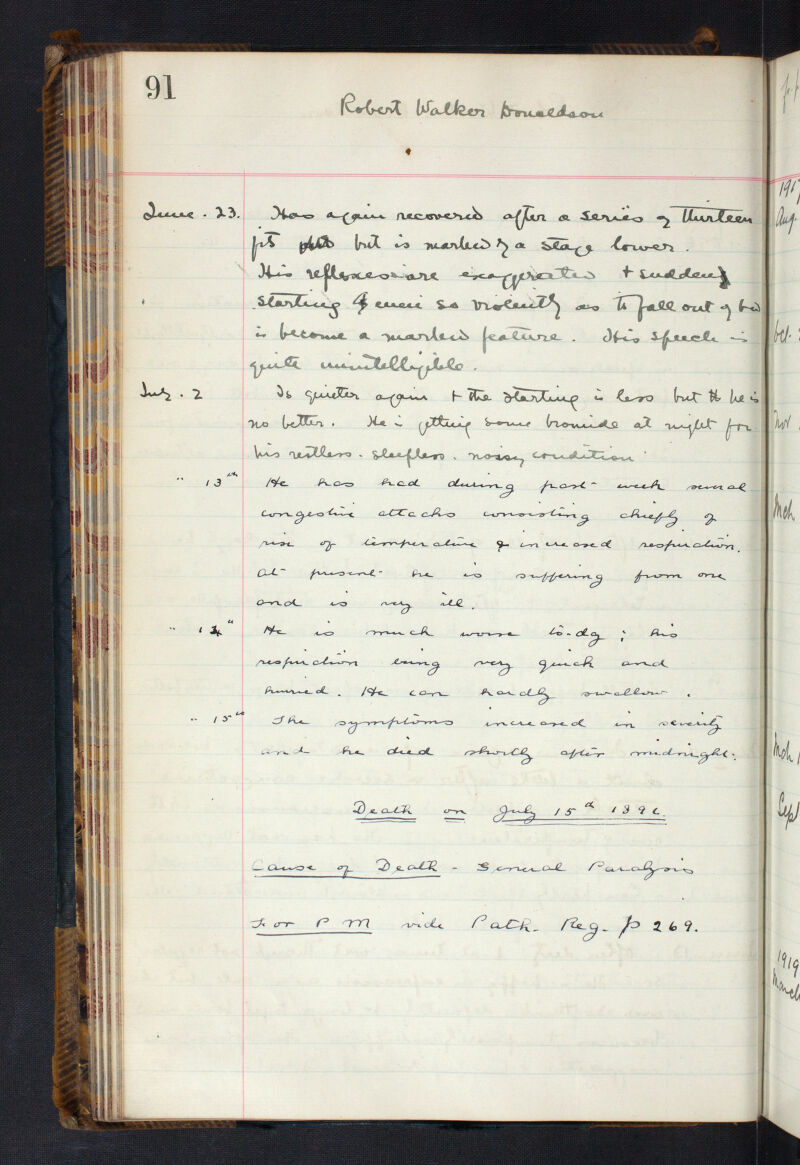 91
Robert Walker Donaldson
June . 23. Has again recovered after a series of thirteen
fits but is marked by a stage lower .
His reflexes are exaggerated + sudden
starting even so violently as to fall out of bed
is become a marked feature . His speech is
quite unintelligible .
July . 2 Is quieter again + the starting is less but he is
no better . He is getting some bromide at night for
his restless . sleepless . noisy condition
" 13th He has had during past week several
congestive attacks consisting chiefly of
rise of temperature & increased respiration .
at present he is suffering from one
and is very ill .
" 14" He is much worse to-day ; his
respiration being very quick and
hurried . He can hardly swallow .
" 15th The symptoms increased in severity
and he died shortly after midnight .
Death on July 15th 1896.
Cause of Death - General Paralysis
For P M vide Path. Reg. p 269.
1917
Aug
Oct.
Nov.
Mch
Mch 1
Sept
1919
March